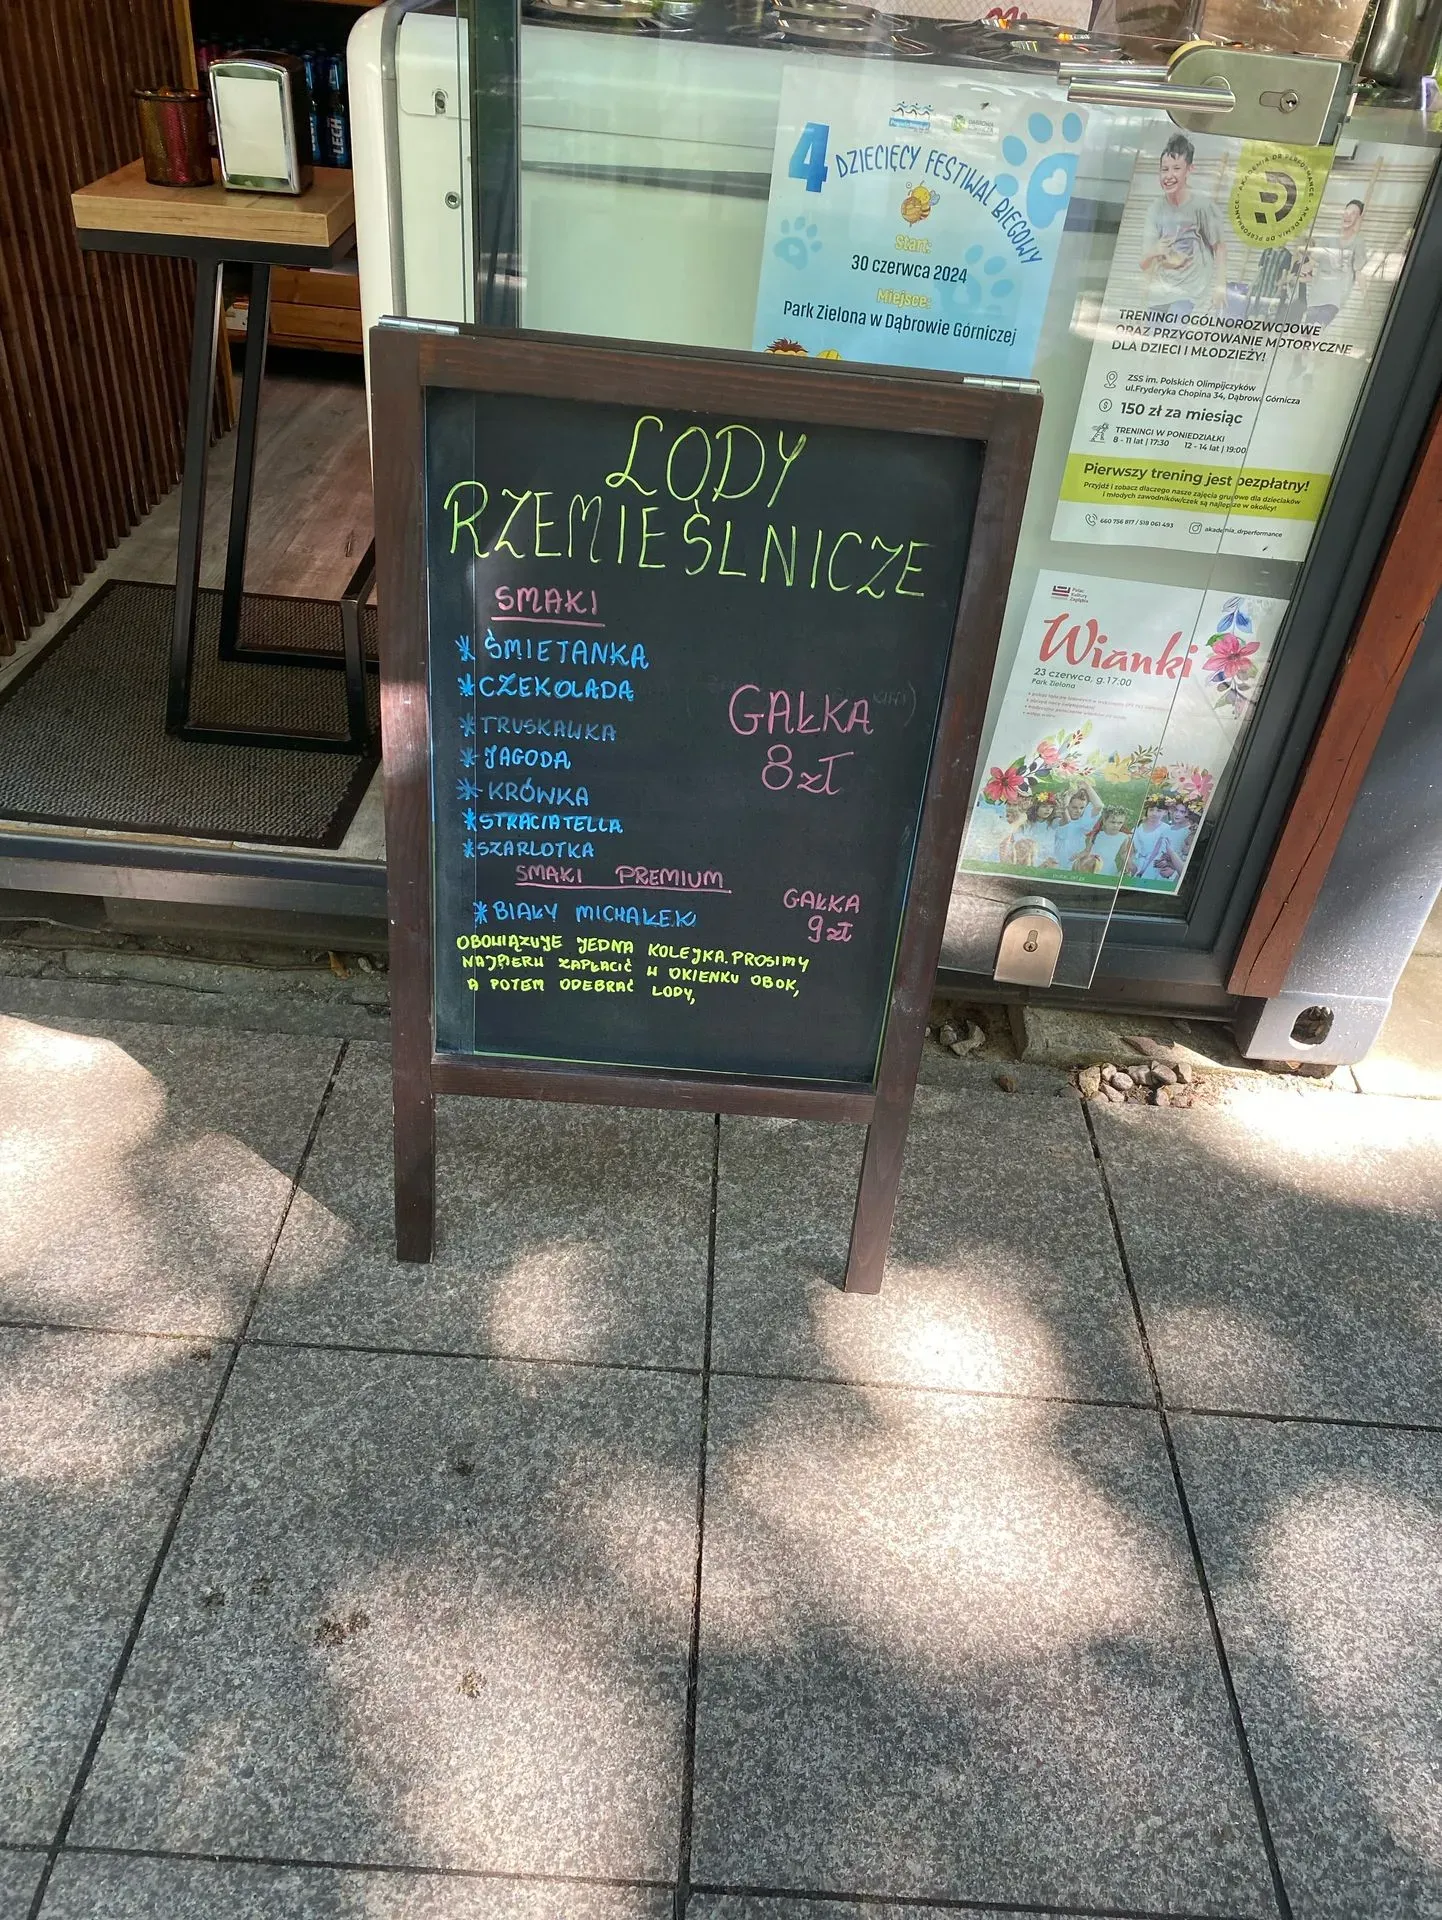 LECH
LECH
4 DZIECIĘCY FESTIWAL BIEGOWY
Start:
30 czerwca 2024
Miejsce:
Park Zielona w Dąbrowie Górniczej
AKADEMIA DR PERFORMANCE
TRENINGI OGÓLNOROZWOJOWE
ORAZ PRZYGOTOWANIE MOTORYCZNE
DLA DZIECI I MŁODZIEŻY!
ZSS im. Polskich Olimpijczyków
ul.Fryderyka Chopina 34, Dąbrowa Górnicza
150 zł za miesiąc
TRENINGI W PONIEDZIAŁKI
8 - 11 lat | 17:30 12 - 14 lat | 19:00
Pierwszy trening jest bezpłatny!
Przyjdź i zobacz dlaczego nasze zajęcia grupowe dla dzieciaków
i młodych zawodników/czek są najlepsze w okolicy!
660 756 817 / 518 061 493 akademia_drperformance
Pałac
Kultury
Zagłębia
Wianki
23 czerwca, g.17:00
Park Zielona
LODY
RZEMIEŚLNICZE
SMAKI
* ŚMIETANKA
* CZEKOLADA
* TRUSKAWKA
* JAGODA
* KRÓWKA
* STRACIATELLA
* SZARLOTKA
GAŁKA
8 zł
SMAKI PREMIUM
* BIAŁY MICHAŁEK
GAŁKA
9 zł
OBOWIĄZUJE JEDNA KOLEJKA. PROSIMY
NAJPIERW ZAPŁACIĆ W OKIENKU OBOK,
A POTEM ODEBRAĆ LODY,